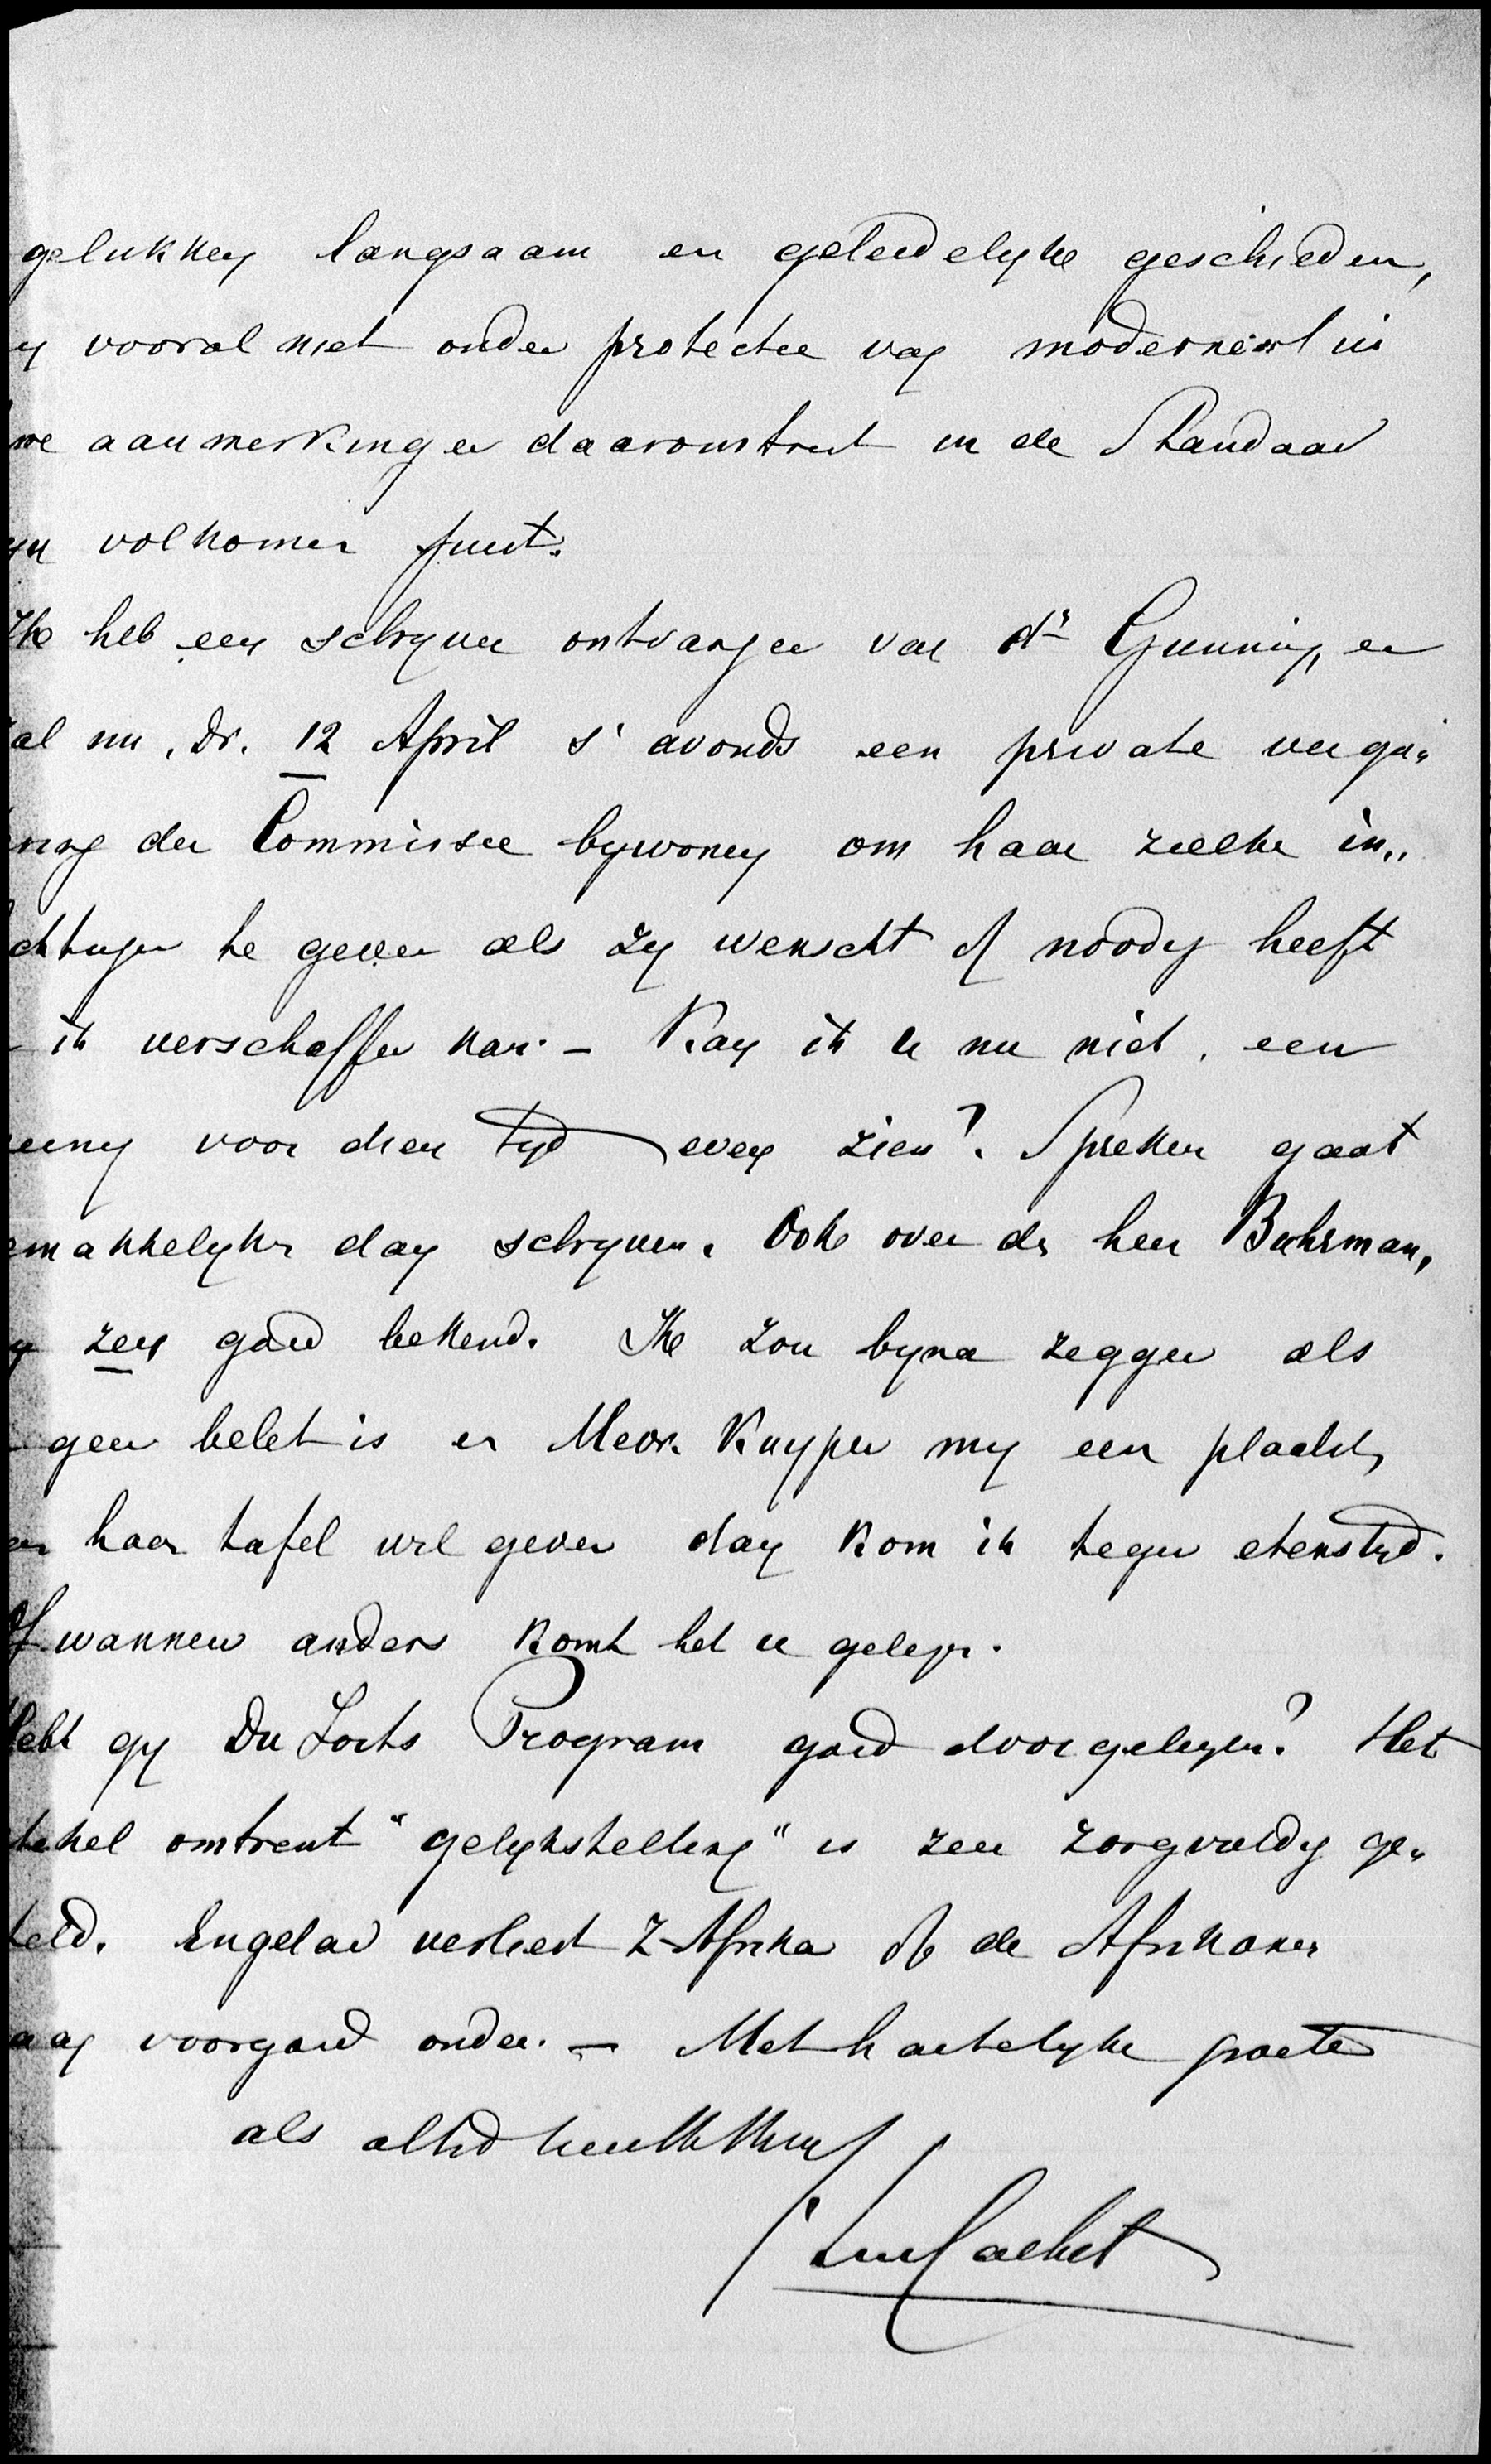 gelukkig langsaam en geleidelyke geschieden,
vooral niet onder protectie van modernen in
aanmerkingen daaromtrent in de Standaard
volkomen juist.
Ik heb een schryven ontvangen van dr Gunning, en
al nu, Dr. 12 April s' avonds een private verga„
ring der Commissie bywonen om haar zulke in„
chtingen te geven als zy wenscht of noodig heeft
ik verschaffen kan. – Kan ik u nu niet, een
voor dien tyd even zien? Spreken gaat
emakkelyker dan schryven. Ook over de heer Buhrman,
zeer goed bekend. Ik zou byna zeggen als
geen belet is en Mevr. Kuyper my een plaats
haar tafel wil geven dan kom ik tegen etenstyd.
Of wanneer anders komt het u gelegen.
Hebt gy Du Toits Program goed doorgelezen? Het
tikel omtrent "gelykstelling" is zeer zorgvuldig ge„
teld. Engeland verliest Z-Afrika of de Afrikaner
voorgoed onder. – Met hartelyke groete
als altyd
Lion Cachet